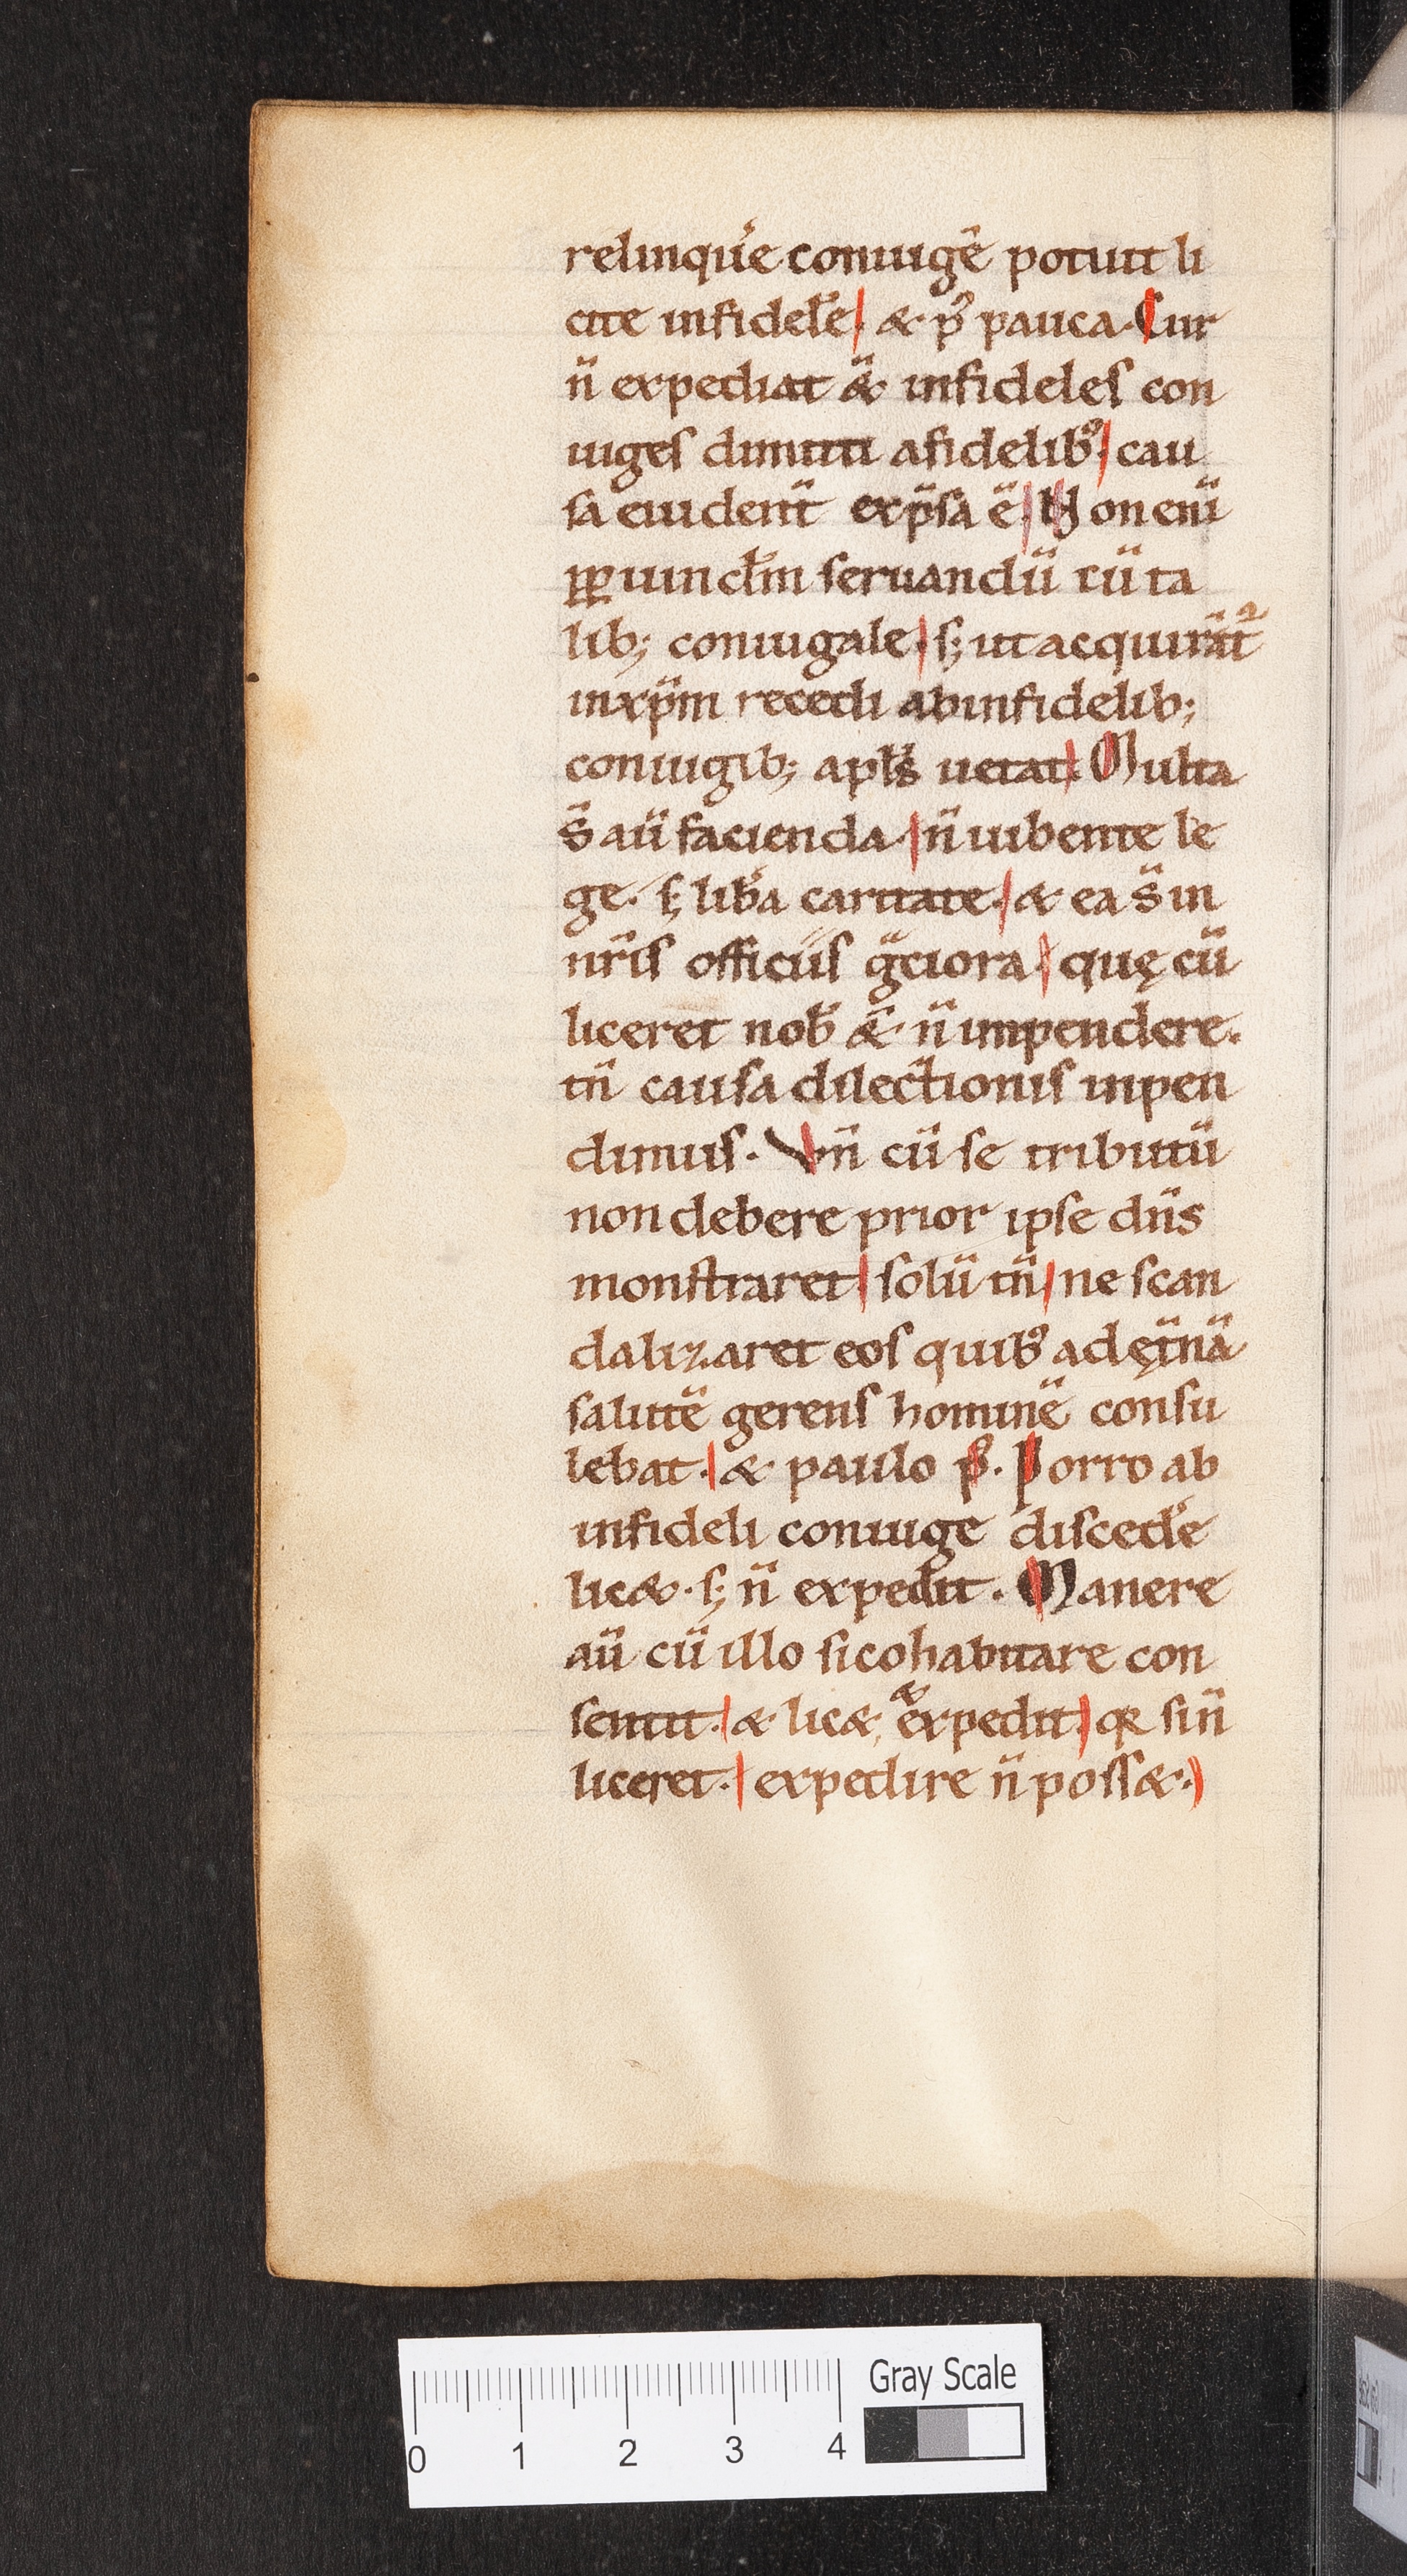 relinqu̓e coniugē potuit li
cite infidel̄e. & p᷒ pauca. Cur
n̄ expediat &̄ infideles con
iuges dimitti afidelib᷒. cau
sa euident̄ exp̄sa ē. Non enī
ꝓp uincl̄m seruandū cū ta
lib; coniugale. s; ut acquirāt᷑
inxp̄m recedi abinfidelib;
coniugib; apl̄s uetat. Multa
s̄ aū facienda. n̄ iubente le
ge. s; lib̄a caritate. & ea s̄ in
nr̄is officiis ḡciora. quę cū
liceret nob̄ &̄ n̄ impendere.
tn̄ causa dilectionis inpen
dimus. Vn̄ cū se tributū
non debere prior ipse dn̄s
monstraret. solū tn̄ ne scan
dalizaret eos quib᷒ ad ęt̄nā
salutē gerens hominē consu
lebat. & paulo p᷒. Porro ab
infideli coniuge disced̄e
lic&. s; n̄ expedit. Manere
aū cū illo si cohabitare con
sentit. & lic& & expedit. qꝛ si n̄
liceret. expedire n̄ poss&.
0 1 2 3 4
Gray Scale